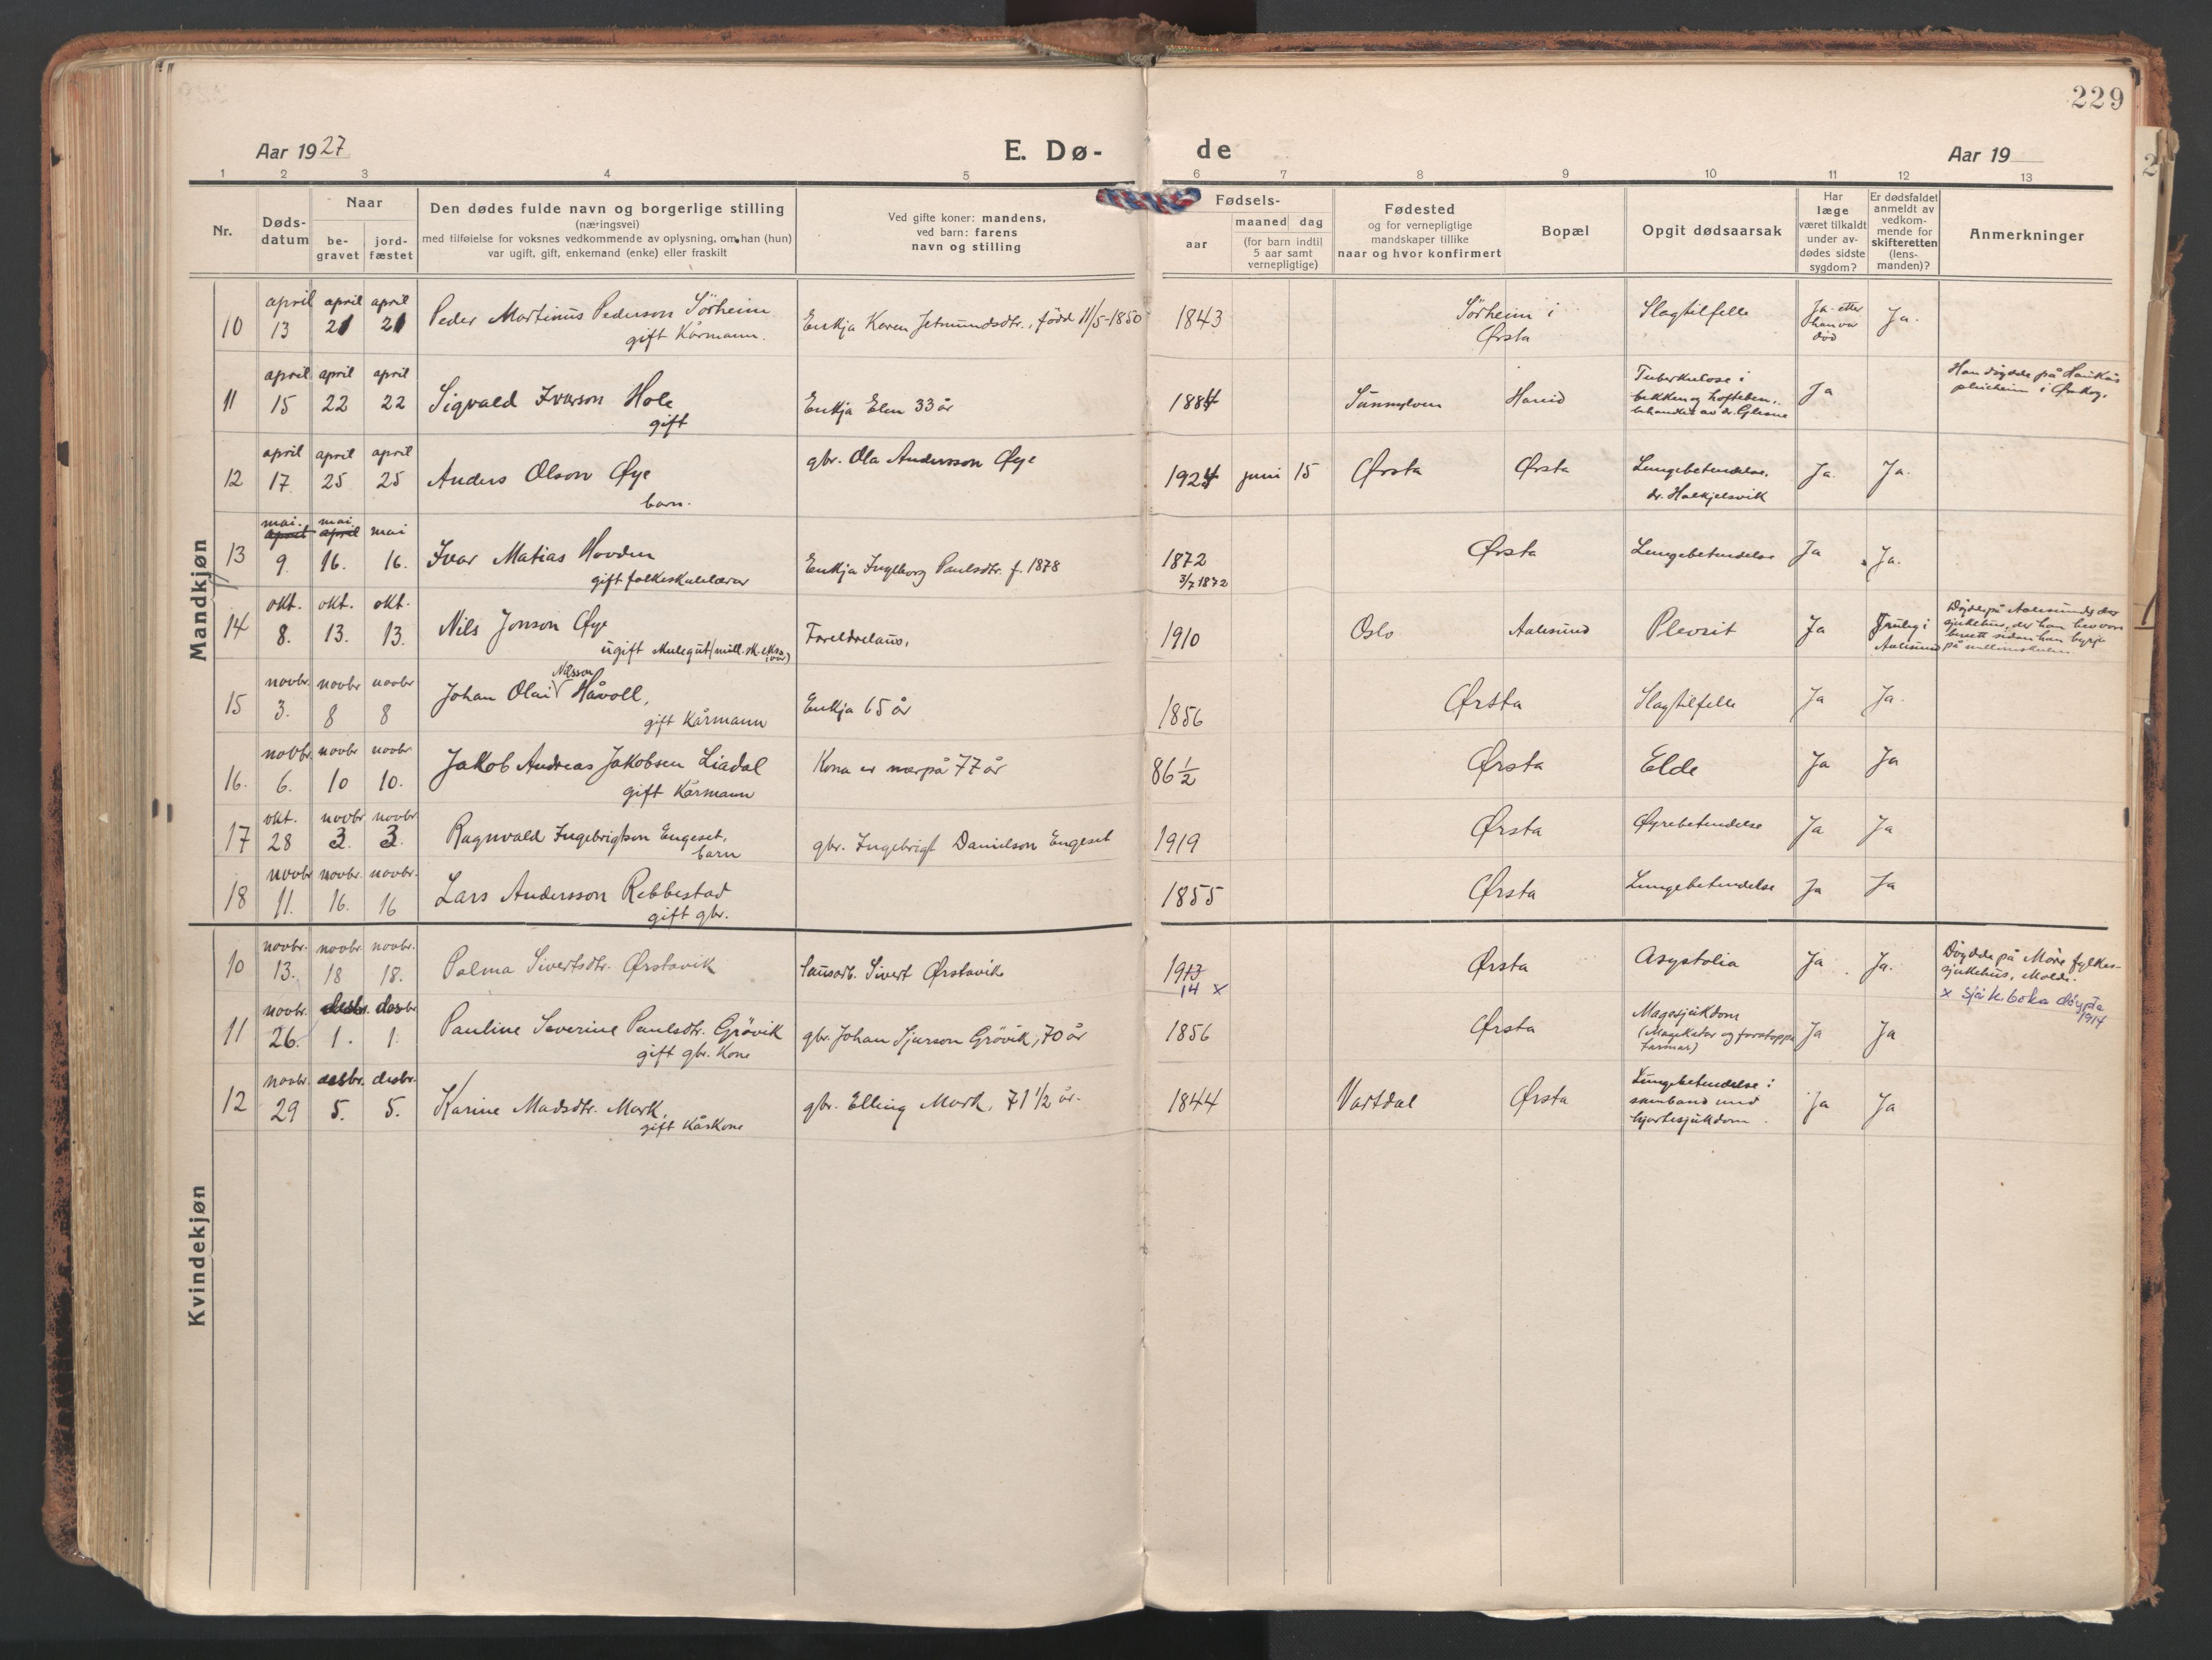 229
Aar 1927 E. Dø- de Aar 19
1 2 3 4 5 6 7 8 9 10 11 12 13
Nr.
Døds-
datum
Naar
be-
gravet
jord-
fæstet
Den dødes fulde navn og borgerlige stilling
(næringsvei)
med tilføielse for voksnes vedkommende av oplysning, om han (hun)
var ugift, gift, enkemand (enke) eller fraskilt
Ved gifte koner: mandens,
ved barn: farens
navn og stilling
Fødsels-
aar
maaned dag
(for barn indtil
5 aar samt
vernepligtige)
Fødested
og for vernepligtige
mandskaper tillike
naar og hvor konfirmert
Bopæl
Opgit dødsaarsak
Har
læge
været tilkaldt
under av-
dødes sidste
sygdom?
Er dødsfaldet
anmeldt av
vedkom-
mende for
skifteretten
(lens-
manden)?
Anmerkninger
Mandkjøn
april april april
10 13 21 21 Peder Martinus Pederson Sörheim
gift Kårmann.
Enkja Karen Jetmundsdtr., född 11/5-1850
1843
Sörheim i
Ørsta
Slagtilfelle
Ja - etter
han var
död
Ja.
april april april
11 15 22 22 Sigvald Ivarson Hole
gift
Enkja Elen 33 år
1884 Sunnylven Hareid
Tuberkulose i
bekken og hofteben.
behandlet av dr.
Ja
Han döydde på
pleieheim i
april april april
12 17 25 25 Anders Olson Øye
barn.
gbr. Ola Andersson Øye
1924 juni 15 Ørsta Ørsta
Lungebetendelse.
dr. Halkjelsvik
Ja. Ja.
mai. mai.
april april mai
13 9. 16. 16. Ivar Matias Hovden
gift folkeskulelærar
Enkja Ingeborg Paulsdtr. f. 1878
1872
3/7 1872
Ørsta Lungebetendelse Ja Ja.
okt. okt. okt.
14 8. 13. 13. Nils Jonson Øye
ugift skulegut
Foreldrelaus.
1910 Oslo Aalesund Plevrit Ja
Truleg i
Aalesund
Döydde på Aalesunds
sjukehus, der han hev vore
sidan han
på millomskulen.
novbr. novbr novbr
Nilsson
15 3. 8 8 Johan Olai Håvoll,
gift Kårmann
Enkja 65 år
1856 Ørsta Slagtilfelle Ja Ja.
novbr. novbr novbr
16. 6. 10 10. Jakob Andreas Jakobsen Liadal
gift Kårmann
Kona er nærpå 77 år
86 1/2 Ørsta Elde Ja Ja
okt. novbr novbr
17 28 3. 3. Ragnvald Ingebrigtson Engeset,
barn
gbr. Ingebrigt Danielson Engeset
1919 Ørsta Øyrebetendelse Ja Ja
novbr novbr. novbr.
18 11. 16. 16 Lars Andersson Rebbestad
gift gbr.
1855 Ørsta Lungebetendelse Ja Ja
Kvindekjøn
novbr. novbr. novbr.
10 13. 18 18. Palma Sivertsdtr. Ørstavik
lausarb. Sivert Ørstavik
1913
14 x
Ørsta Asystolia Ja. Ja.
Döydde på Möre fylkes-
sjukehus, Molde.
x Sjå k.boka döypte
1914
novbr. desbr. desbr
11 26. 1. 1. Pauline Severine Paulsdtr. Grövik
gift gbr. Kone
gbr. Johan Sjurson Grövik, 70 år
1856 Ørsta
Magesjukdom
(Magekatar og forstoppa
tarmar)
Ja Ja
novbr. desbr. desbr.
12 29 5. 5. Karine Madsdtr. Mork,
gift Kårkone
gbr. Elling Mork, 71 1/2 år.
1844 Vartdal Ørsta
Lungebetendelse i
samband med
hjartesjukdom.
Ja Ja